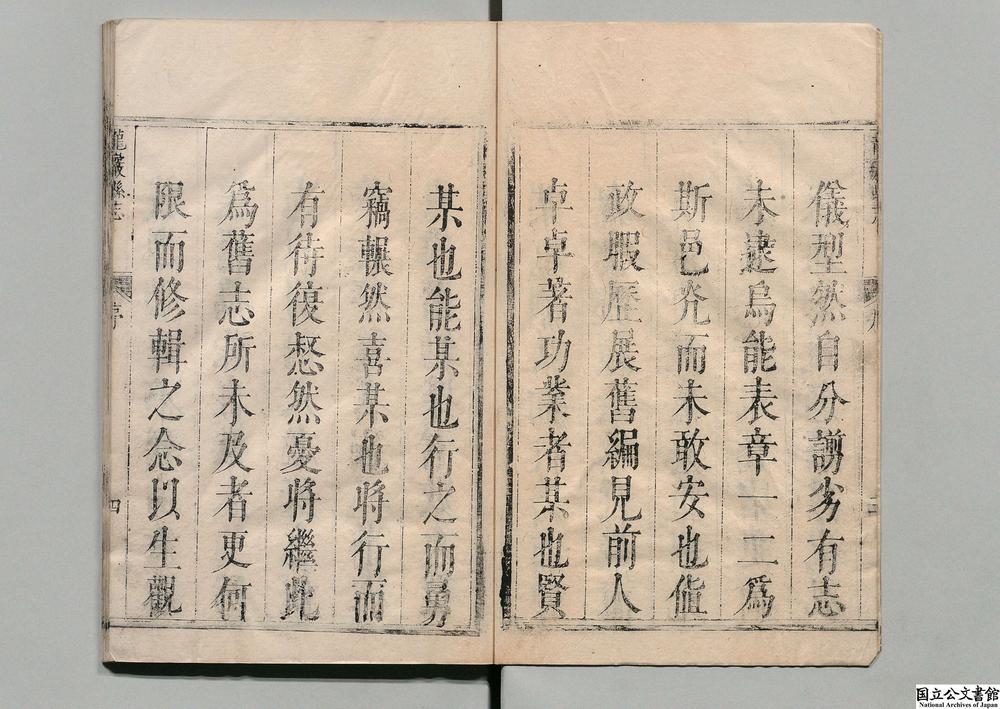 儀型然自分謭劣有志
未逮烏能表章一二為
斯邑光而未敢安也值
政暇歷展舊編見前人
卓卓著功業者某也賢
某也能某也行之而勇
竊囅然喜某也將行而
有待復愀然憂將繼此
為舊志所未及者更何
限而修輯之念以生觀
龍巖縣志
序
四
国立公文書館
National Archives of Japan